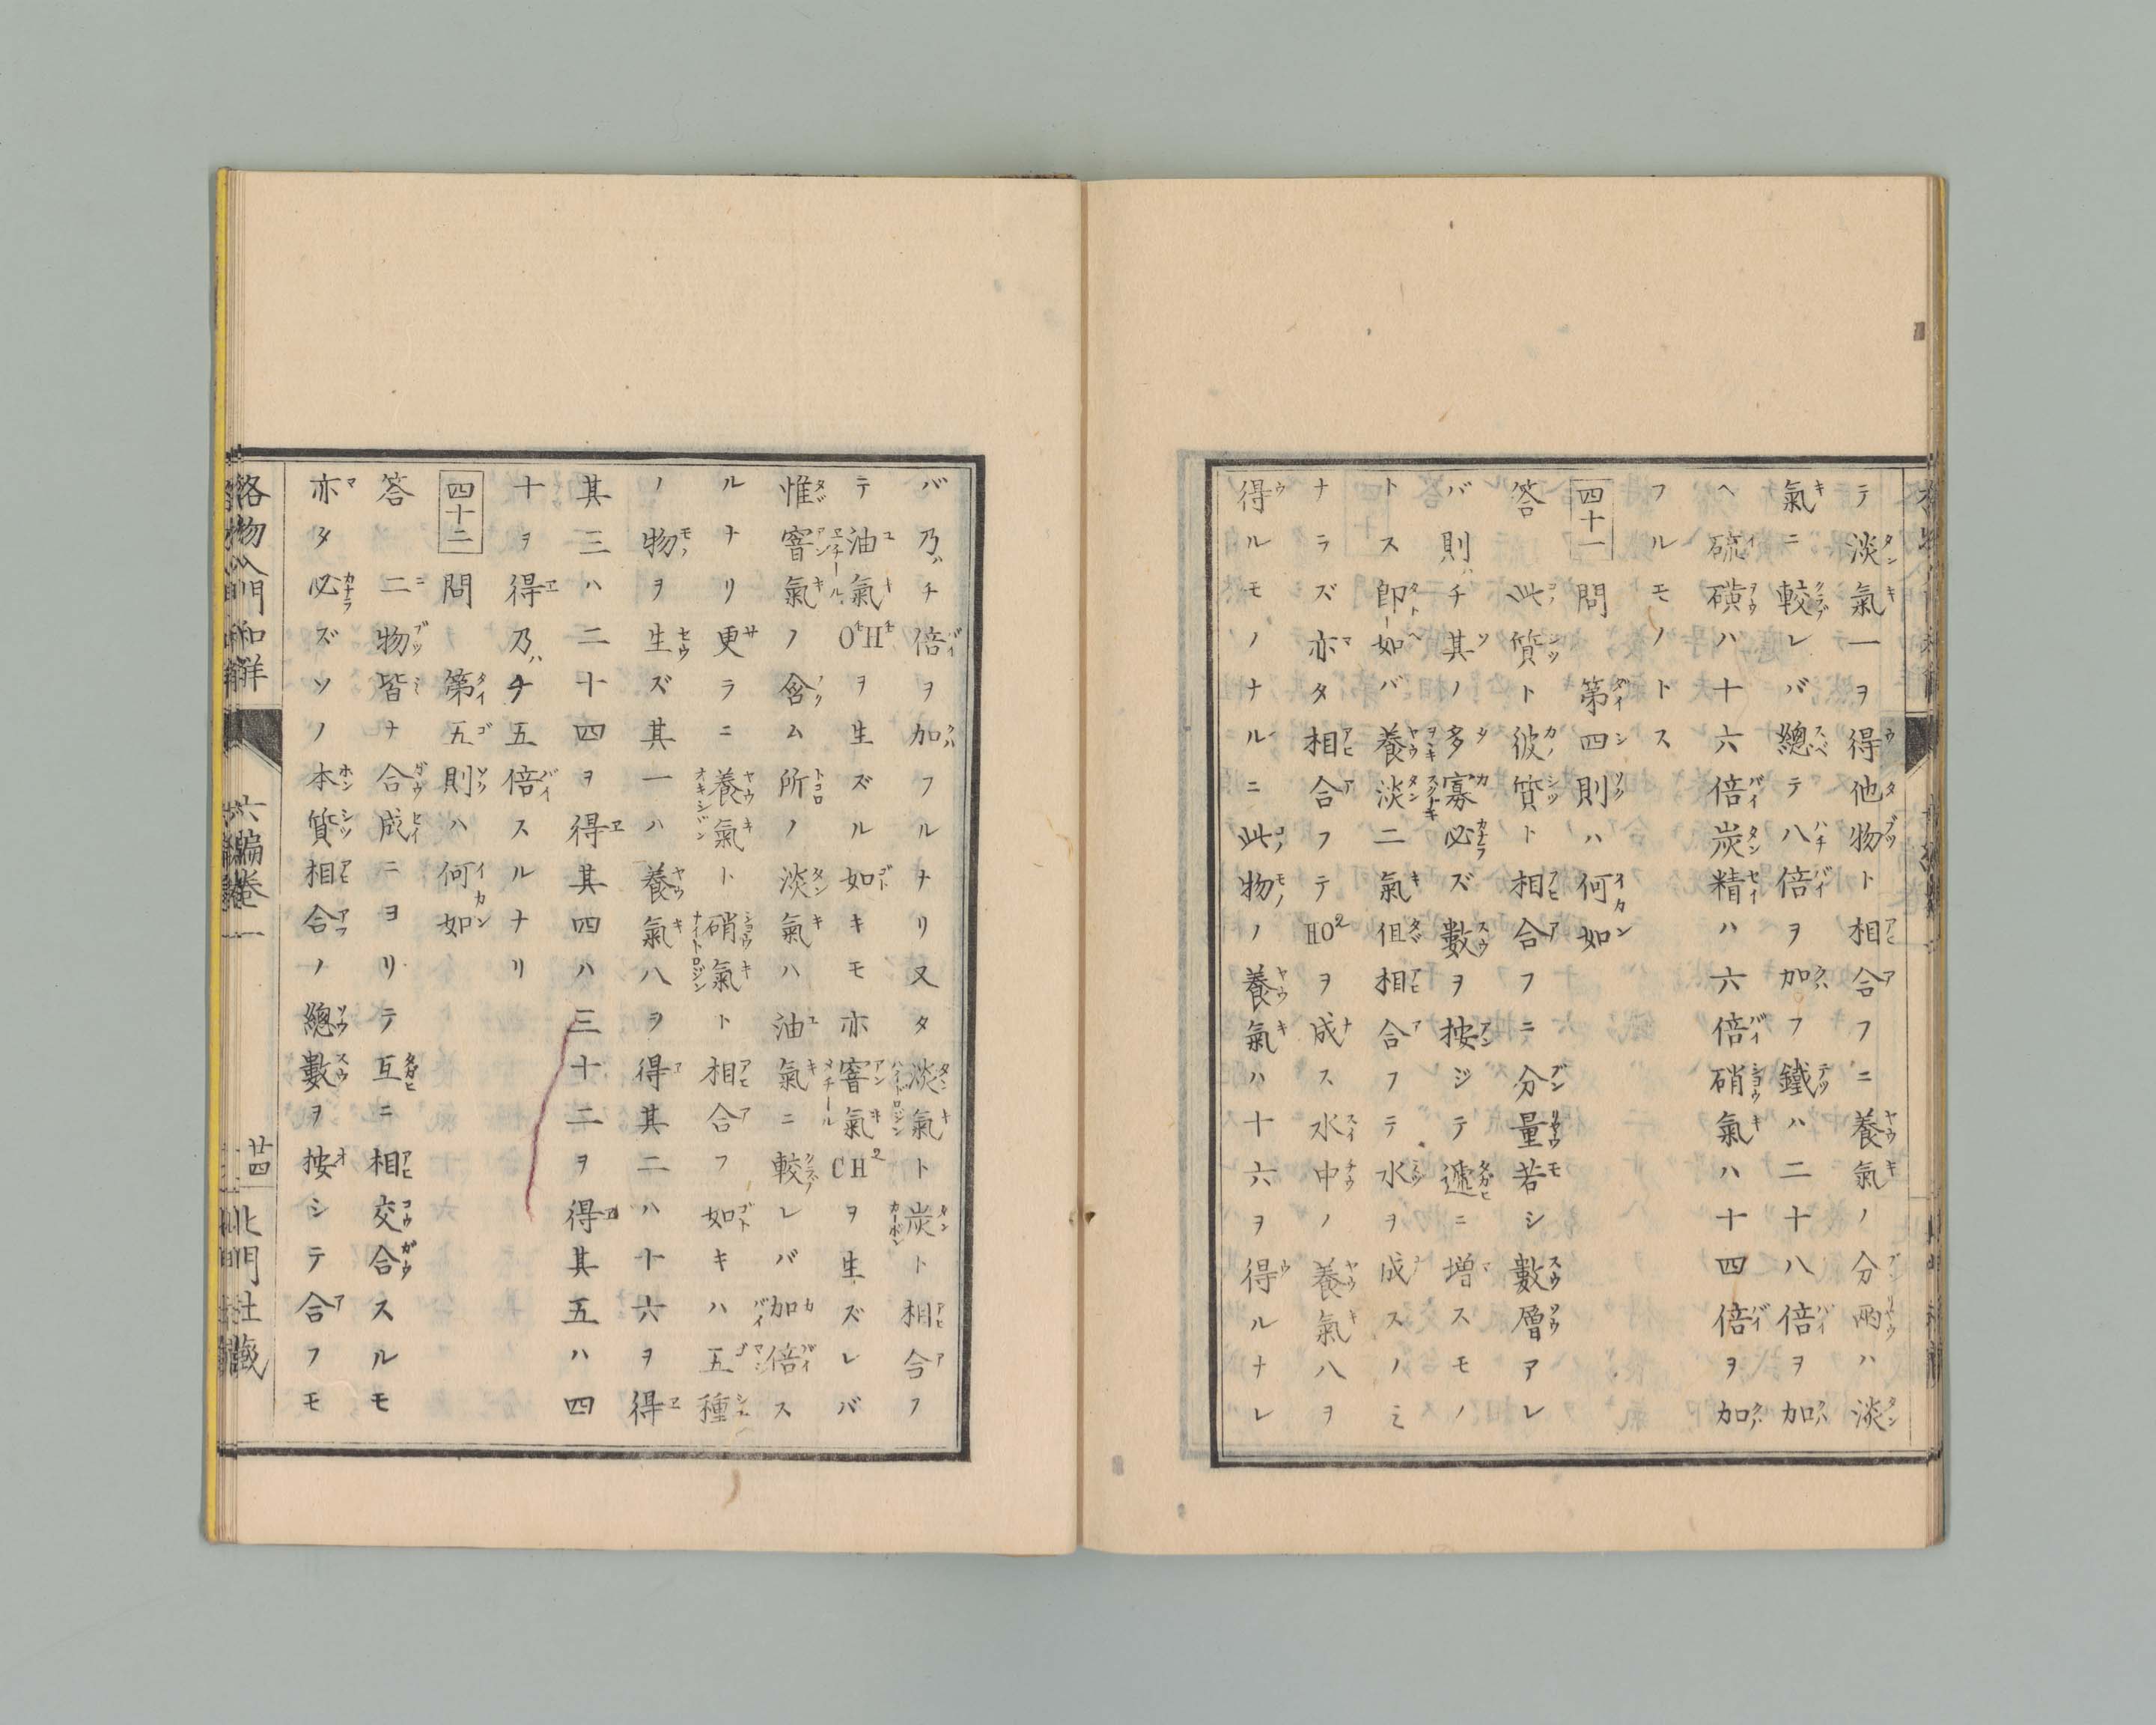 テ淡氣一ヲ得他物ト相合フニ養氣ノ分兩ハ淡
氣ニ較レバ總テ八倍ヲ加フ鐵ハ二十八倍ヲ加
ヘ硫磺ハ十六倍炭精ハ六倍硝氣ハ十四倍ヲ加
フルモノトス
四十一 問 第四則ハ何如
答 此質ト彼質ト相合フニ分量若シ數層アレ
バ則チ其ノ多寡必ズ數ヲ按ジテ遞ニ増スモノ
トス即如バ養淡二氣但相合フテ水ヲ成スノミ
ナラズ亦タ相合フテHO²ヲ成ス水中ノ養氣八ヲ
得ルモノナルニ此物ノ養氣ハ十六ヲ得ルナレ
バ乃チ倍ヲ加フルナリ又タ淡氣ト炭ト相合フ
テ油氣O⁴H⁴ヲ生ズル如キモ亦窨氣CH²ヲ生ズレバ
惟窨氣ノ含ム所ノ淡氣ハ油氣ニ較レバ加倍ス
ルナリ更ラニ養氣ト硝氣ト相合フ如キハ五種
ノ物ヲ生ズ其一ハ養氣八ヲ得其二ハ十六ヲ得
其三ハ二十四ヲ得其四ハ三十二ヲ得其五ハ四
十ヲ得乃チ五倍スルナリ
四十二 問 第五則ハ何如
答 二物皆ナ合成ニヨリテ互ニ相交合スルモ
亦タ必ズソノ本質相合ノ總數ヲ按シテ合フモ
格物入門和解 六編卷一 廿四 北門社藏